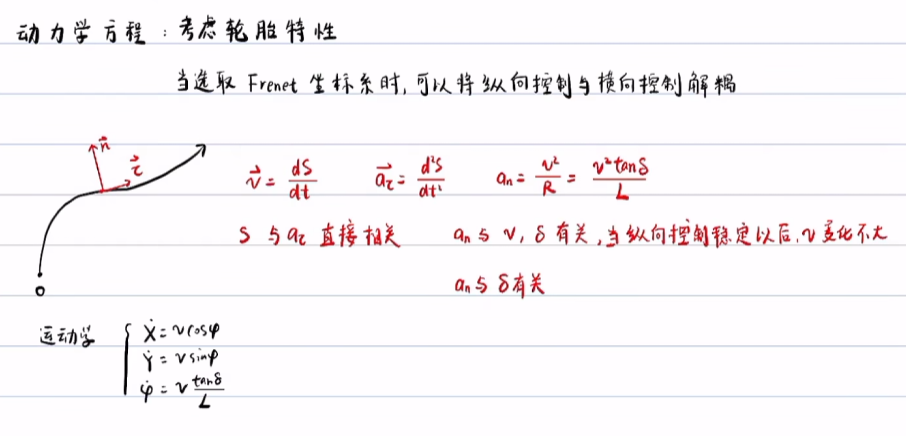 动力学方程：考虑轮胎特性
当选取 Frenet 坐标系时,可以将纵向控制与横向控制解耦
n⃗
τ⃗
v⃗ = dS/dt  a⃗τ = d²S/dt²  an = v²/R = v²tanδ/L
S 与 aτ 直接相关  an 与 v, δ 有关,当纵向控制稳定以后,v变化不大
an 与 δ 有关
O
运动学
Ẋ = vcosφ
Ẏ = vsinφ
φ̇ = v tanδ/L